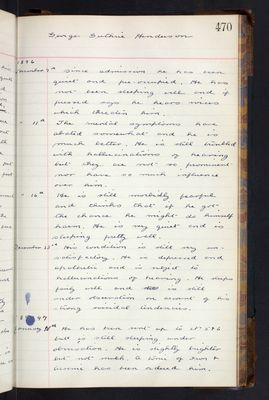 470
George Guthrie Henderson
1896
November 9th Since admission he has been
quiet and pre-occupied. He has
not been sleeping well and if
pressed says he hears voices
which threaten him.
" 11th The mental symptoms have
abated somewhat and he is
much better. He is still troubled
with hallucinations of hearing
but they are not so prominent
nor have so much influence
over him.
" 16th He is still morbidly fearful
and thinks that if he got
the chance he might do himself
harm. He is very quiet and is
sleeping pretty well.
December His condition is still very un-
satisfactory. He is depressed and
apathetic and is subject to
hallucinations of hearing. He sleeps
fairly well and is still
under observation on account of his
strong suicidal tendencies.
January He has been sent up to
but is still sleeping under
observation. He is slightly brighter
but not much. A tonic of Iron &
Arsenic has been ordered him.